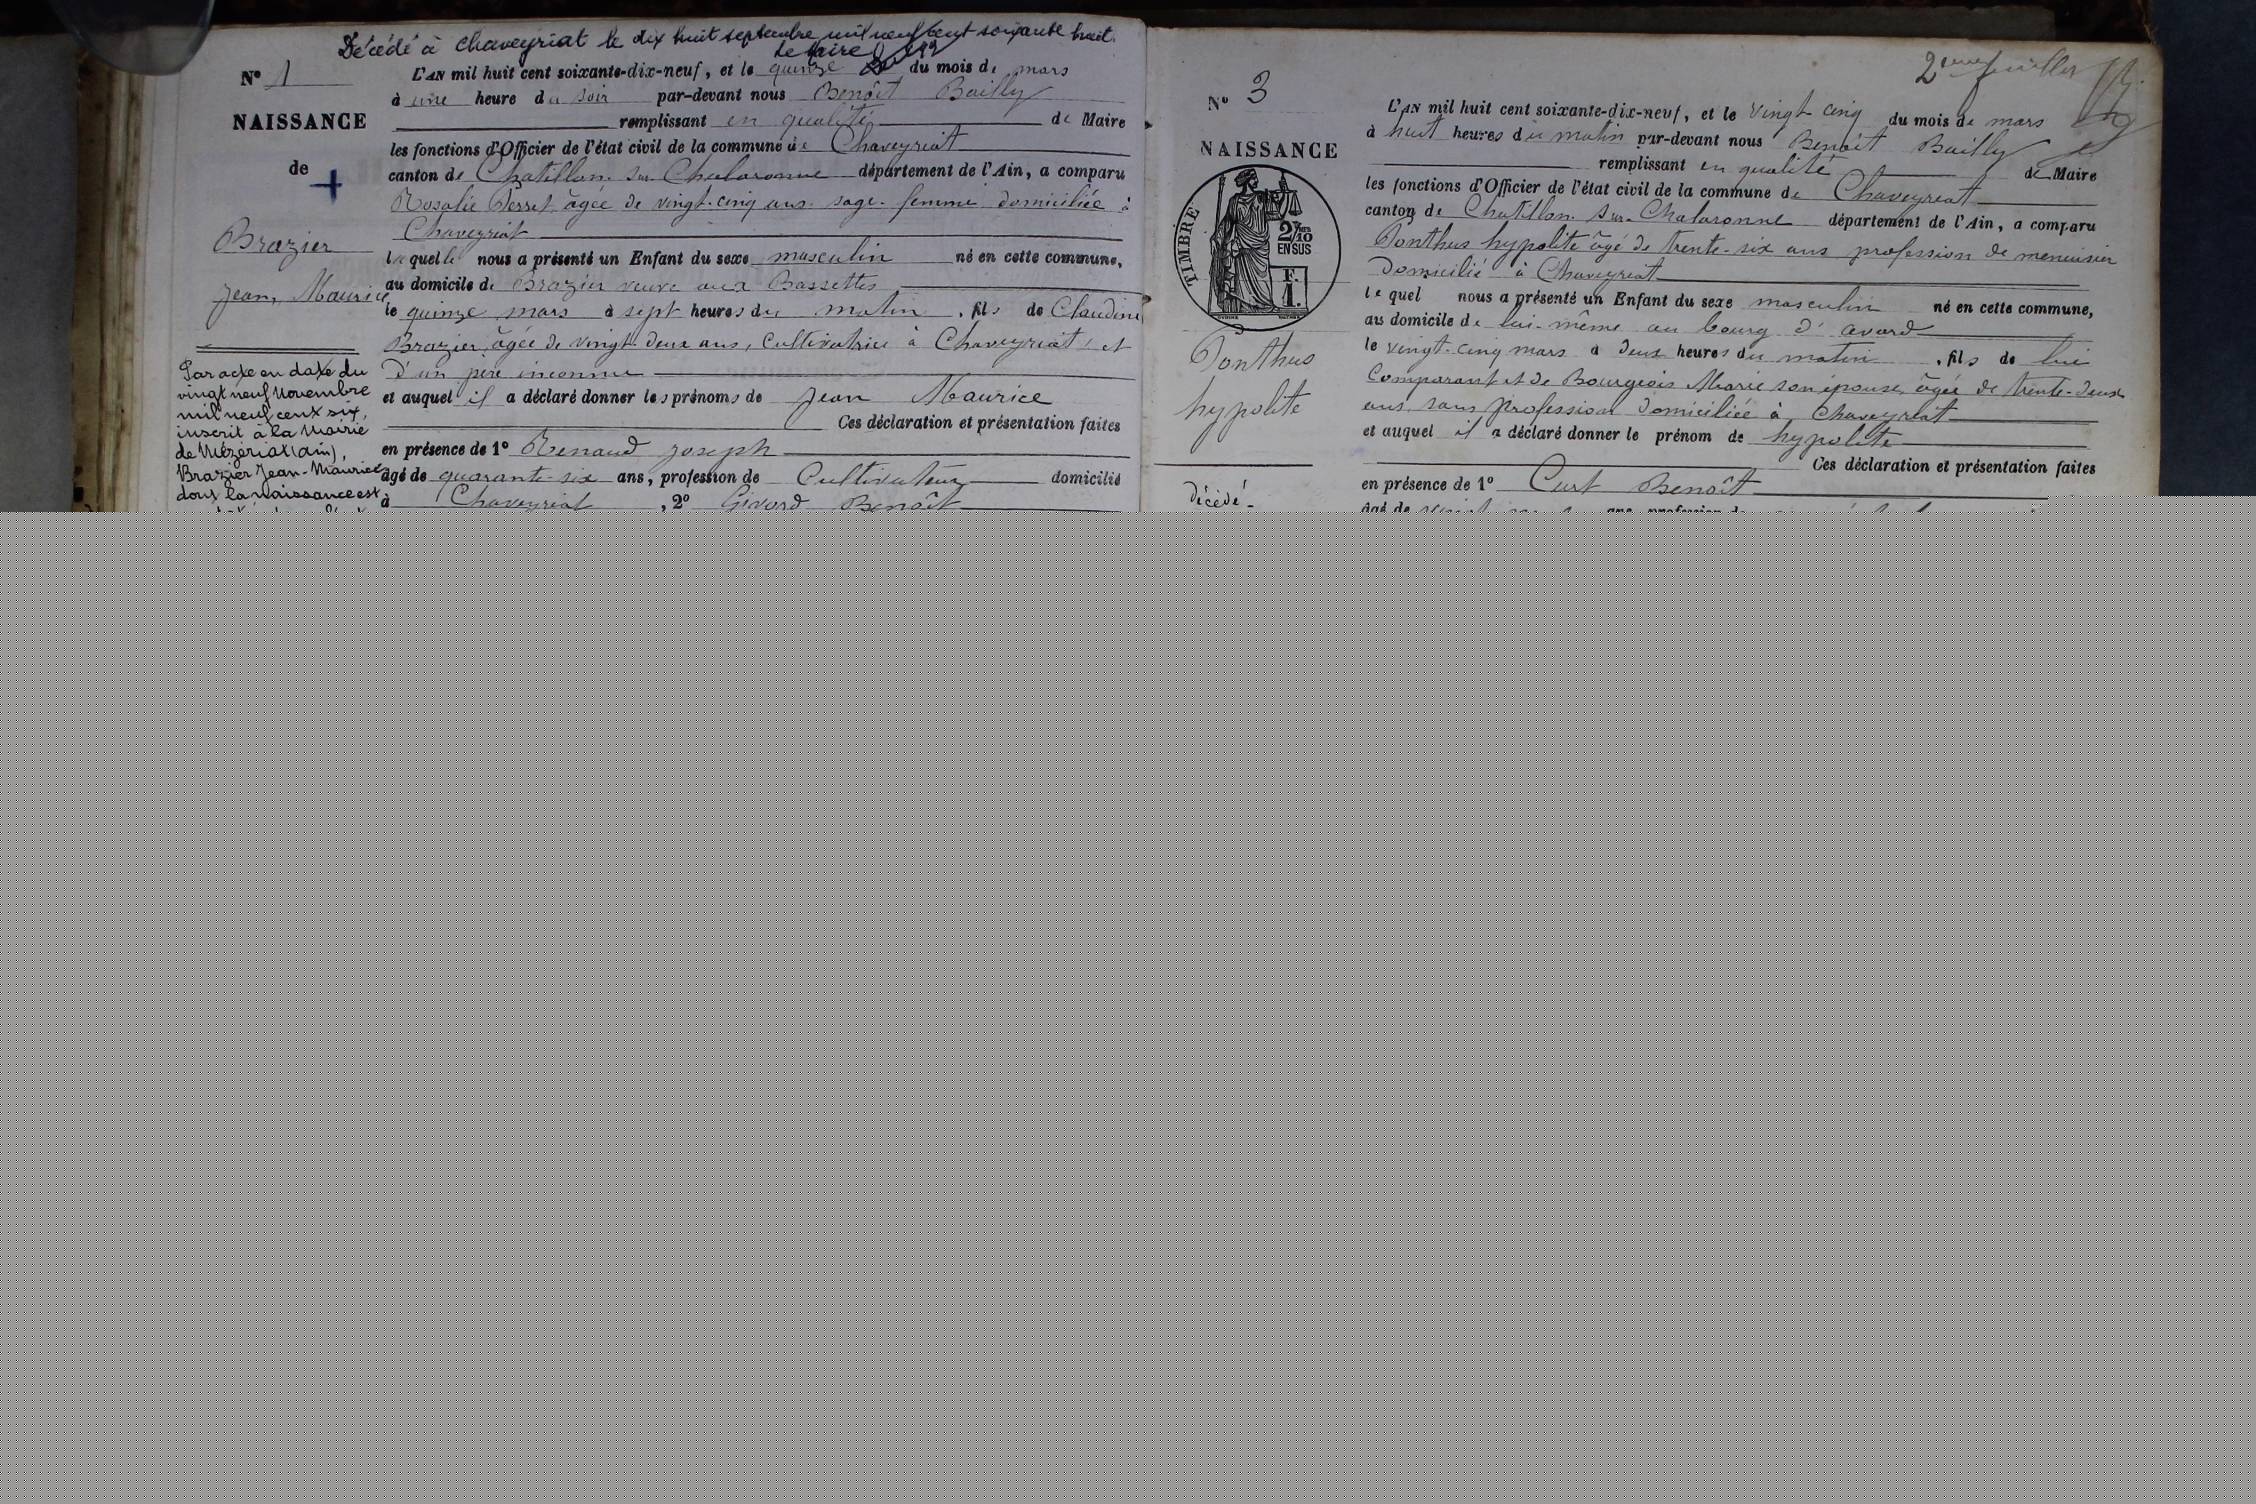 Décédé à Chaveyriat le dix huit septembre mil neuf cent soixante huit.
Le Maire
N° 1
NAISSANCE
de
Brazier
Jean, Maurice
Par acte en date du
vingt neuf Novembre
mil neuf cent six,
inscrit à la Mairie
de Mézériat (ain),
Brazier Jean-Maurice
dont la naissance est
L'AN mil huit cent soixante-dix-neuf, et le quinze du mois de mars
à une heure du soir par-devant nous Benoît Bailly
remplissant en qualité de Maire
les fonctions d'Officier de l'état civil de la commune de Chaveyriat
canton de Chatillon sur Chalaronne département de l'Ain, a comparu
Rosalie Perret âgée de vingt-cinq ans sage-femme domiciliée à
Chaveyriat
laquelle nous a présenté un Enfant du sexe masculin né en cette commune,
au domicile de Brazier veuve aux Bassettes
le quinze mars à sept heures du matin, fils de Claudine
Brazier, âgée de vingt-deux ans, Cultivatrice à Chaveyriat, et
d'un père inconnu
et auquel il a déclaré donner les prénoms de Jean Maurice
Ces déclaration et présentation faites
en présence de 1° Renaud Joseph
âgé de quarante-six ans, profession de Cultivateur domicilié
à Chaveyriat, 2° Givord Benoît
2ème feuillet
N° 3
NAISSANCE
TIMBRE
2/10
EN SUS
F.
1.
Ponthus
hypolite
Décédé-
L'AN mil huit cent soixante-dix-neuf, et le vingt cinq du mois de mars
à huit heures du matin par-devant nous Benoît Bailly
remplissant en qualité de Maire
les fonctions d'Officier de l'état civil de la commune de Chaveyriat
canton de Chatillon sur Chalaronne département de l'Ain, a comparu
Ponthus hypolite âgé de trente-six ans profession de menuisier
domicilié à Chaveyriat
lequel nous a présenté un Enfant du sexe masculin né en cette commune,
au domicile de lui-même au bourg d'avard
le vingt-cinq mars à deux heures du matin, fils de lui
Comparant et de Bourgeois Marie son épouse, âgée de trente-deux
ans, sans profession domiciliée à Chaveyriat
et auquel il a déclaré donner le prénom de hypolite
Ces déclaration et présentation faites
en présence de 1° Curt Benoît